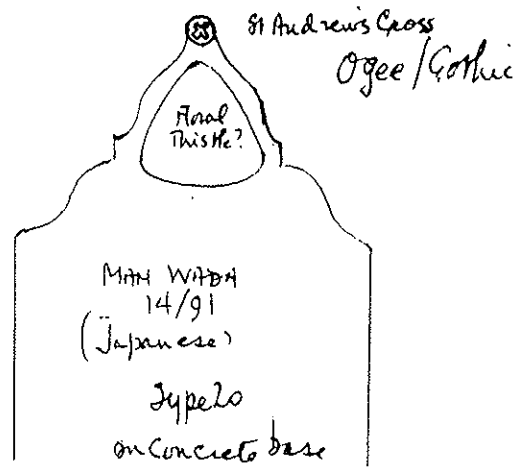 St Andrew's Cross
Ogee/Gothic
Floral
Thistle?
MAN WADA
14/91
(Japanese)
Type 20
on Concrete base